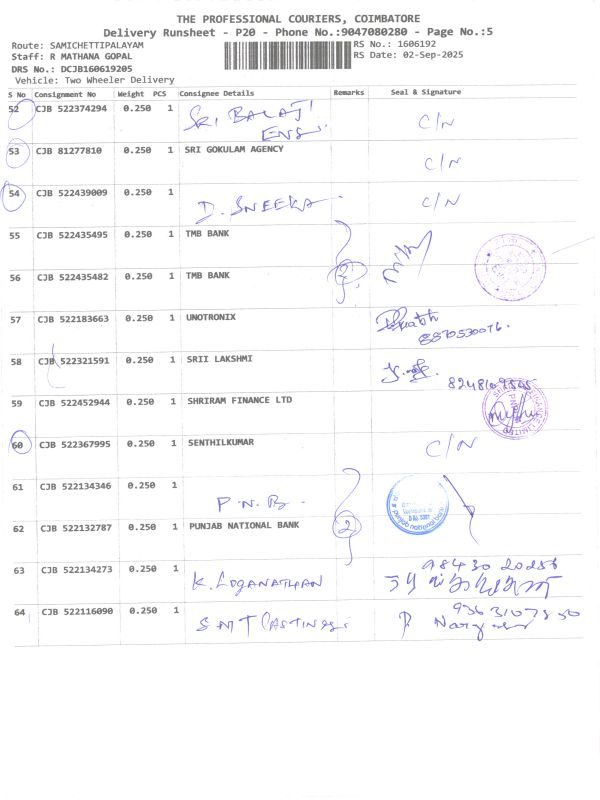 THE PROFESSIONAL COURIERS, COIMBATORE
Delivery Runsheet - P20 - Phone No.:9047080280 - Page No.:5
Route: SAMICHETTIPALAYAM RS No.: 1606192
Staff: R MATHANA GOPAL RS Date: 02-Sep-2025
DRS No.: DCJB160619205
Vehicle: Two Wheeler Delivery
S No Consignment No Weight PCS Consignee Details Remarks Seal & Signature
52 CJB 522374294 0.250 1 SRI BALAJI ENGG. C/N
53 CJB 81277810 0.250 1 SRI GOKULAM AGENCY C/N
54 CJB 522439009 0.250 1 D. SNEEKA C/N
55 CJB 522435495 0.250 1 TMB BANK
56 CJB 522435482 0.250 1 TMB BANK 2
57 CJB 522183663 0.250 1 UNOTRONIX 8870530076.
58 CJB 522321591 0.250 1 SRII LAKSHMI 8248109545
59 CJB 522452944 0.250 1 SHRIRAM FINANCE LTD
60 CJB 522367995 0.250 1 SENTHILKUMAR C/N
61 CJB 522134346 0.250 1 P.N.B.
62 CJB 522132787 0.250 1 PUNJAB NATIONAL BANK 2
63 CJB 522134273 0.250 1 K. LOGANATHAN 98430 20256
64 CJB 522116090 0.250 1 SMT CASTINGS. 9363107850